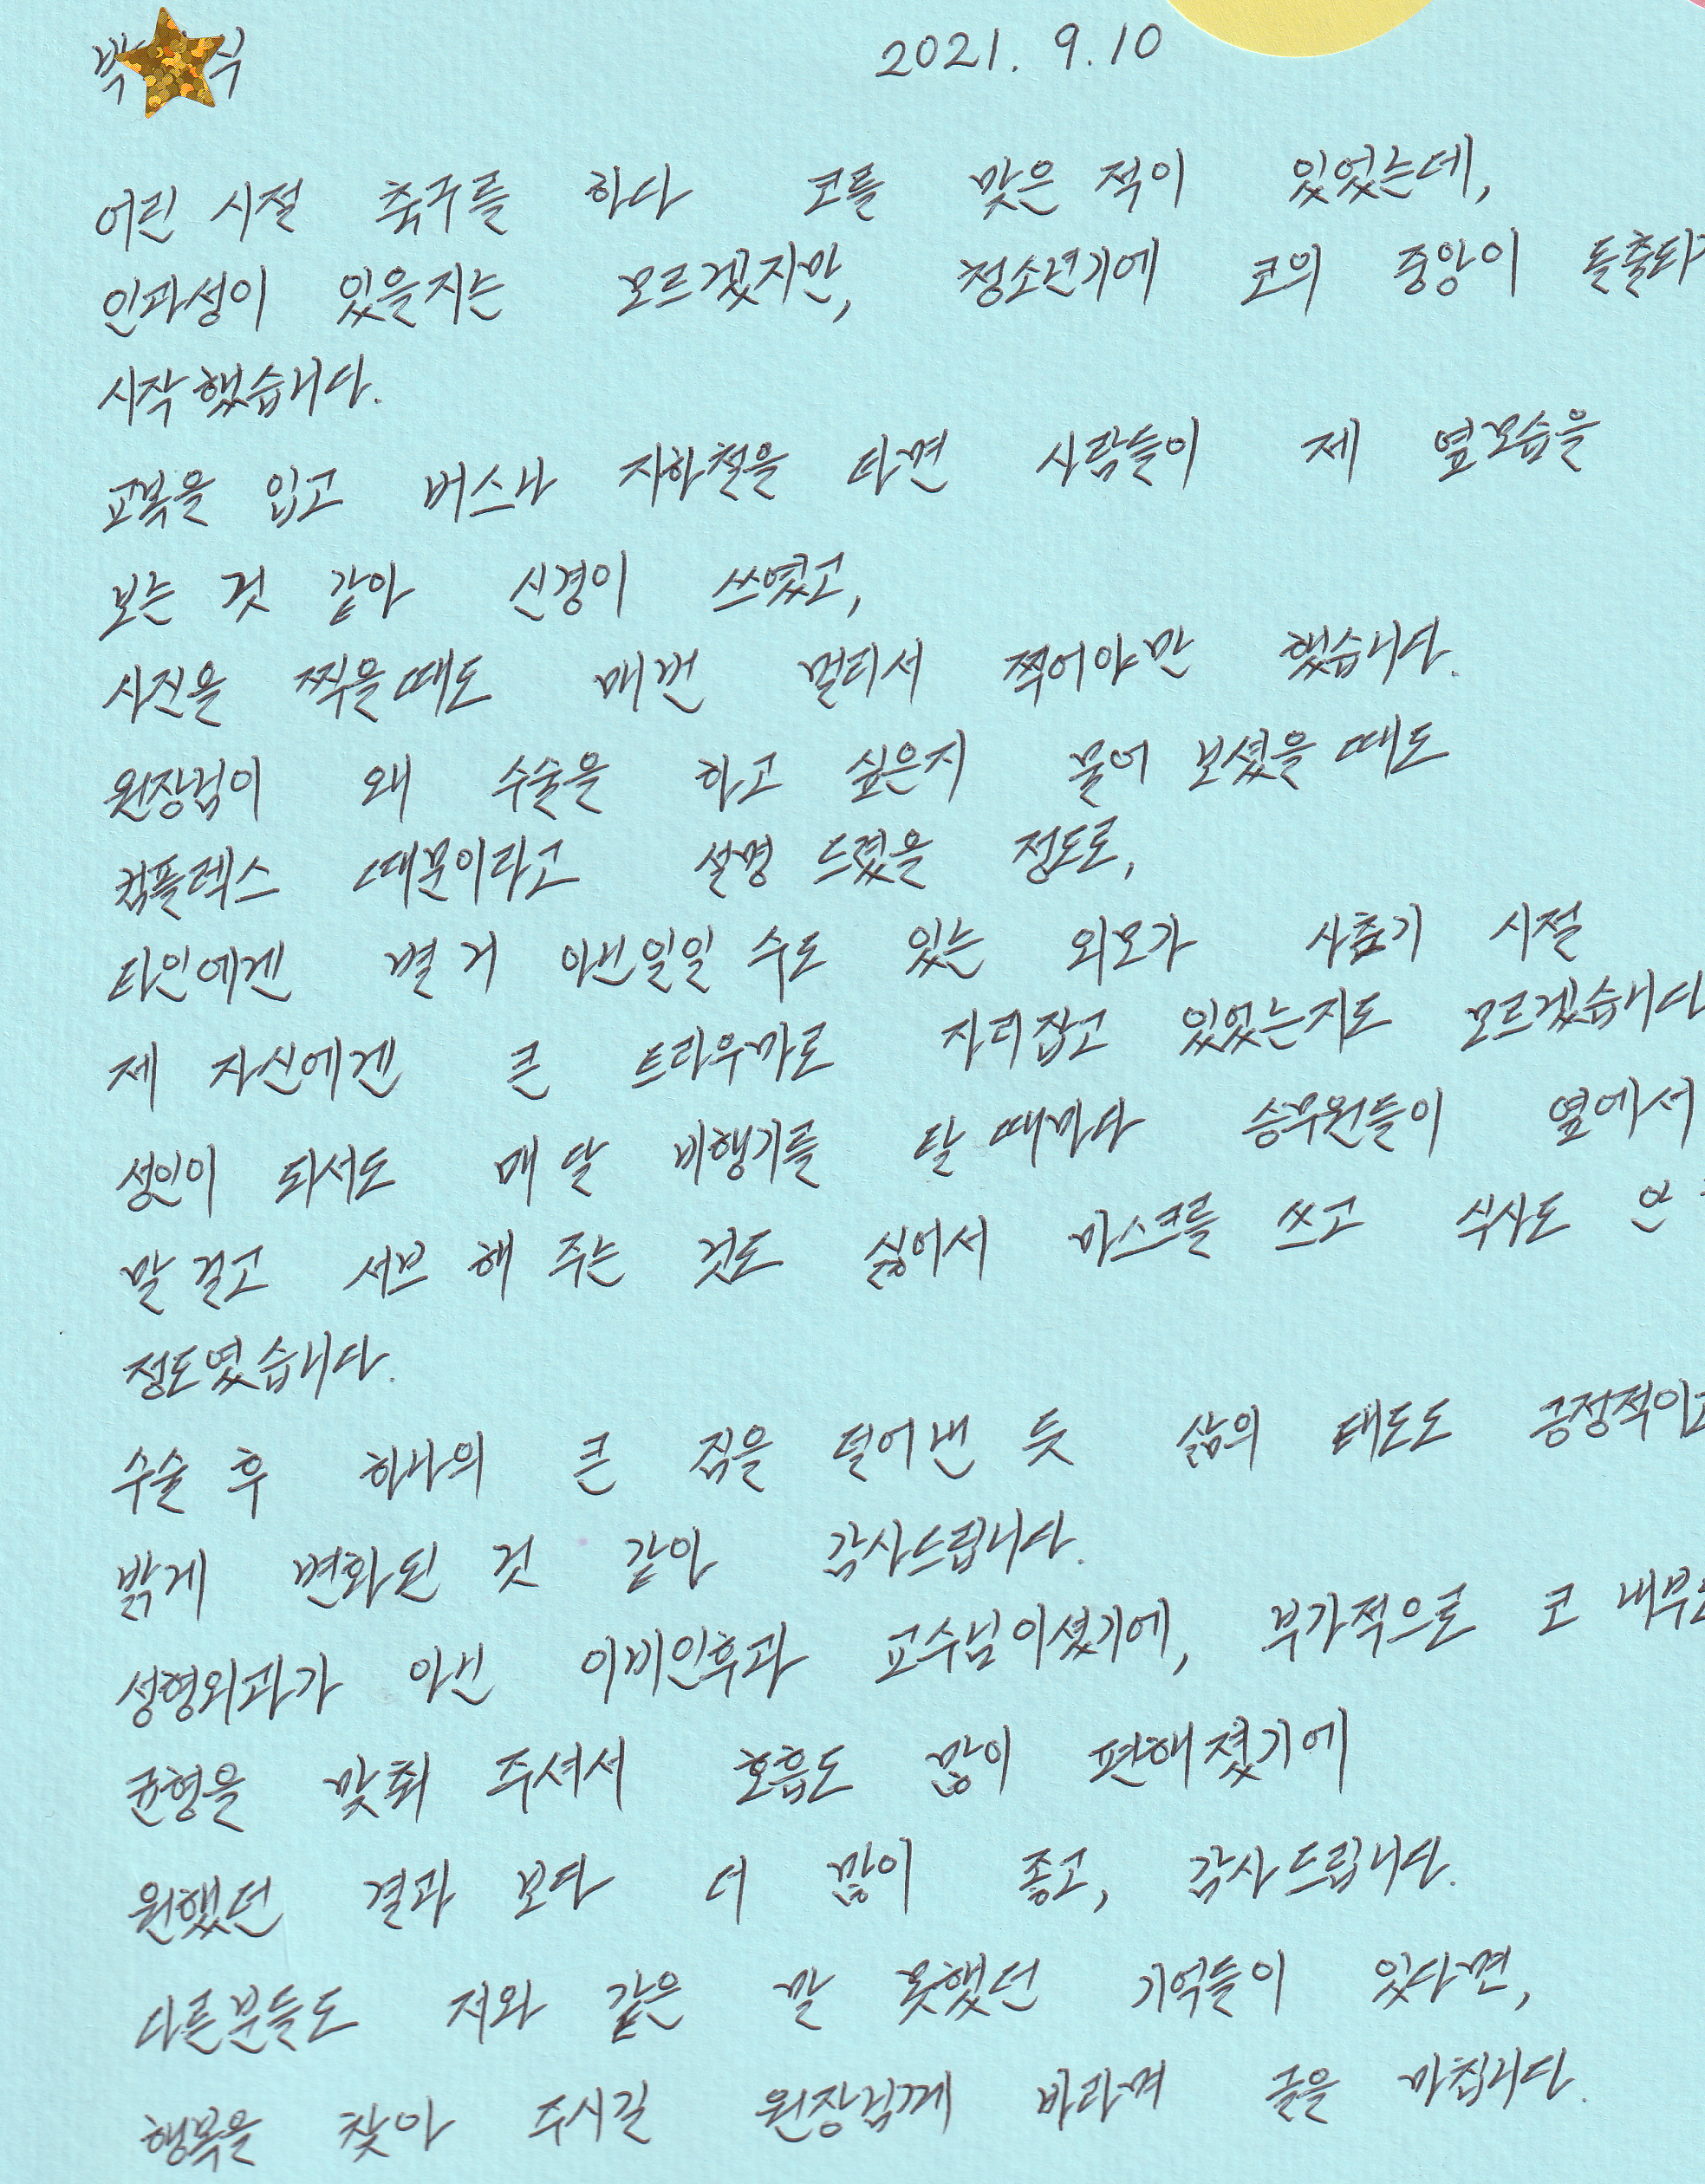 박 식 2021. 9. 10
어린 시절 축구를 하다 코를 맞은 적이 있었는데,
인과성이 있을지는 모르겠지만, 청소년기에 코의 중앙이 돌출되
시작했습니다.
교복을 입고 버스나 지하철을 타면 사람들이 제 옆모습을
보는 것 같아 신경이 쓰였고,
사진을 찍을때도 매번 멀리서 찍어야만 했습니다.
원장님이 왜 수술을 하고 싶은지 물어 보셨을 때도
컴플렉스 때문이라고 설명 드렸을 정도로,
타인에겐 별 거 아닌일일 수도 있는 외모가 사춘기 시절
제 자신에겐 큰 트라우마로 자리잡고 있었는지도 모르겠습니다
성인이 되서도 매 달 비행기를 탈 때마다 승무원들이 옆에서
말 걸고 서브 해 주는 것도 싫어서 마스크를 쓰고 식사도 안
정도였습니다.
수술 후 하나의 큰 짐을 덜어낸 듯 삶의 태도도 긍정적이고
밝게 변화된 것 같아 감사드립니다.
성형외과가 아닌 이비인후과 교수님이셨기에, 부가적으로 코 내부
균형을 맞춰 주셔서 호흡도 많이 편해졌기에
원했던 결과 보다 더 많이 좋고, 감사드립니다.
다른분들도 저와 같은 말 못했던 기억들이 있다면,
행복을 찾아 주시길 원장님께 바라며 글을 마칩니다.